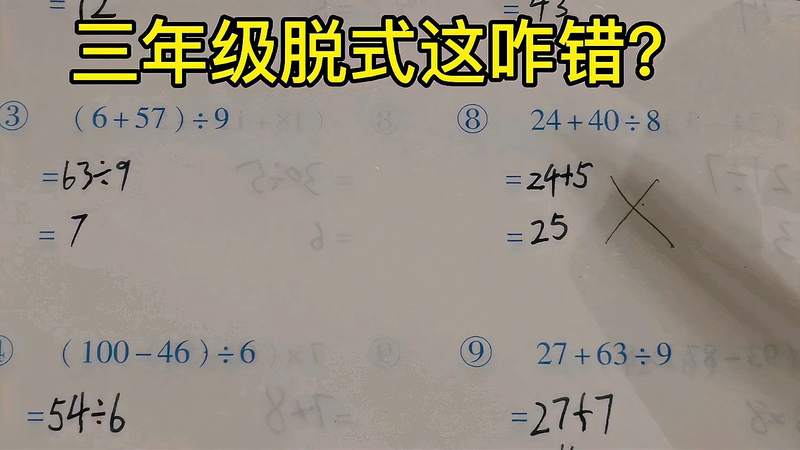 =12
=43
三年级脱式这咋错?
③ (6+57)÷9
=63÷9
=7
⑧ 24+40÷8
=24+5
=25
(100-46)÷6
=54÷6
⑨ 27+63÷9
=27+7